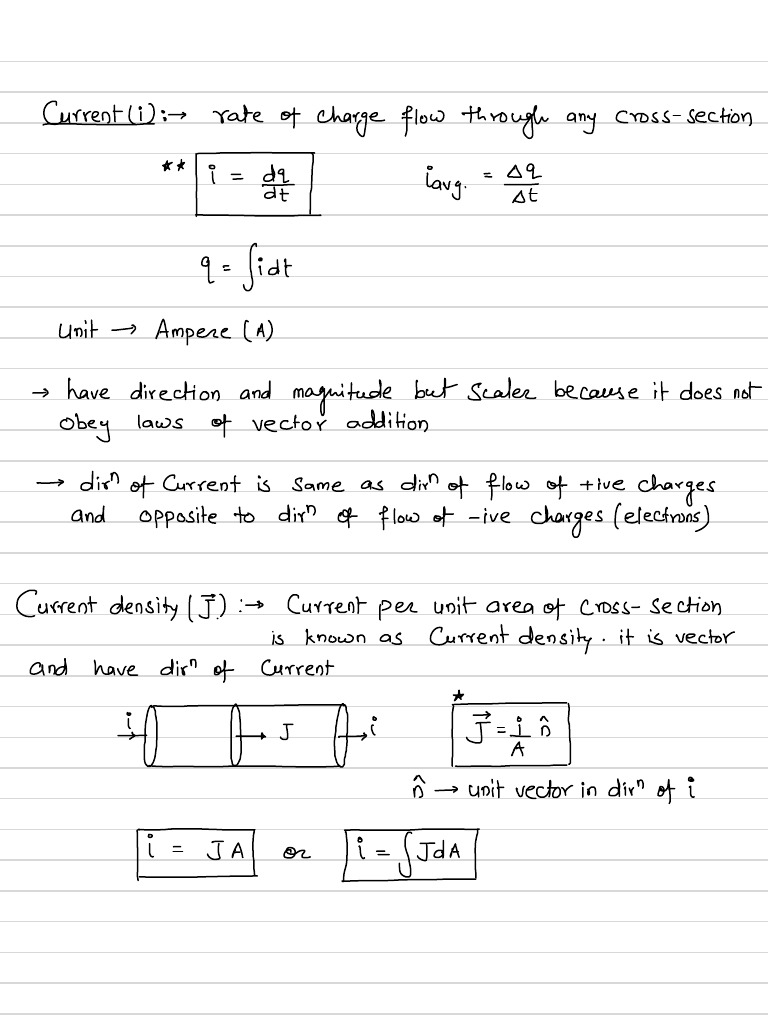 Current (i) :→ rate of charge flow through any cross-section
** i = dq/dt    i avg. = Δq/Δt
q = ∫idt
Unit → Ampere (A)
→ have direction and magnitude but Scaler because it does not
obey laws of vector addition
→ dirⁿ of Current is same as dirⁿ of flow of +ive charges
and opposite to dirⁿ of flow of -ive charges (electrons)
Current density (J⃗) :→ Current per unit area of cross-section
is known as Current density. it is vector
and have dirⁿ of Current
i J i
* J⃗ = i/A n̂
n̂ → unit vector in dirⁿ of i
i = JA or i = ∫JdA